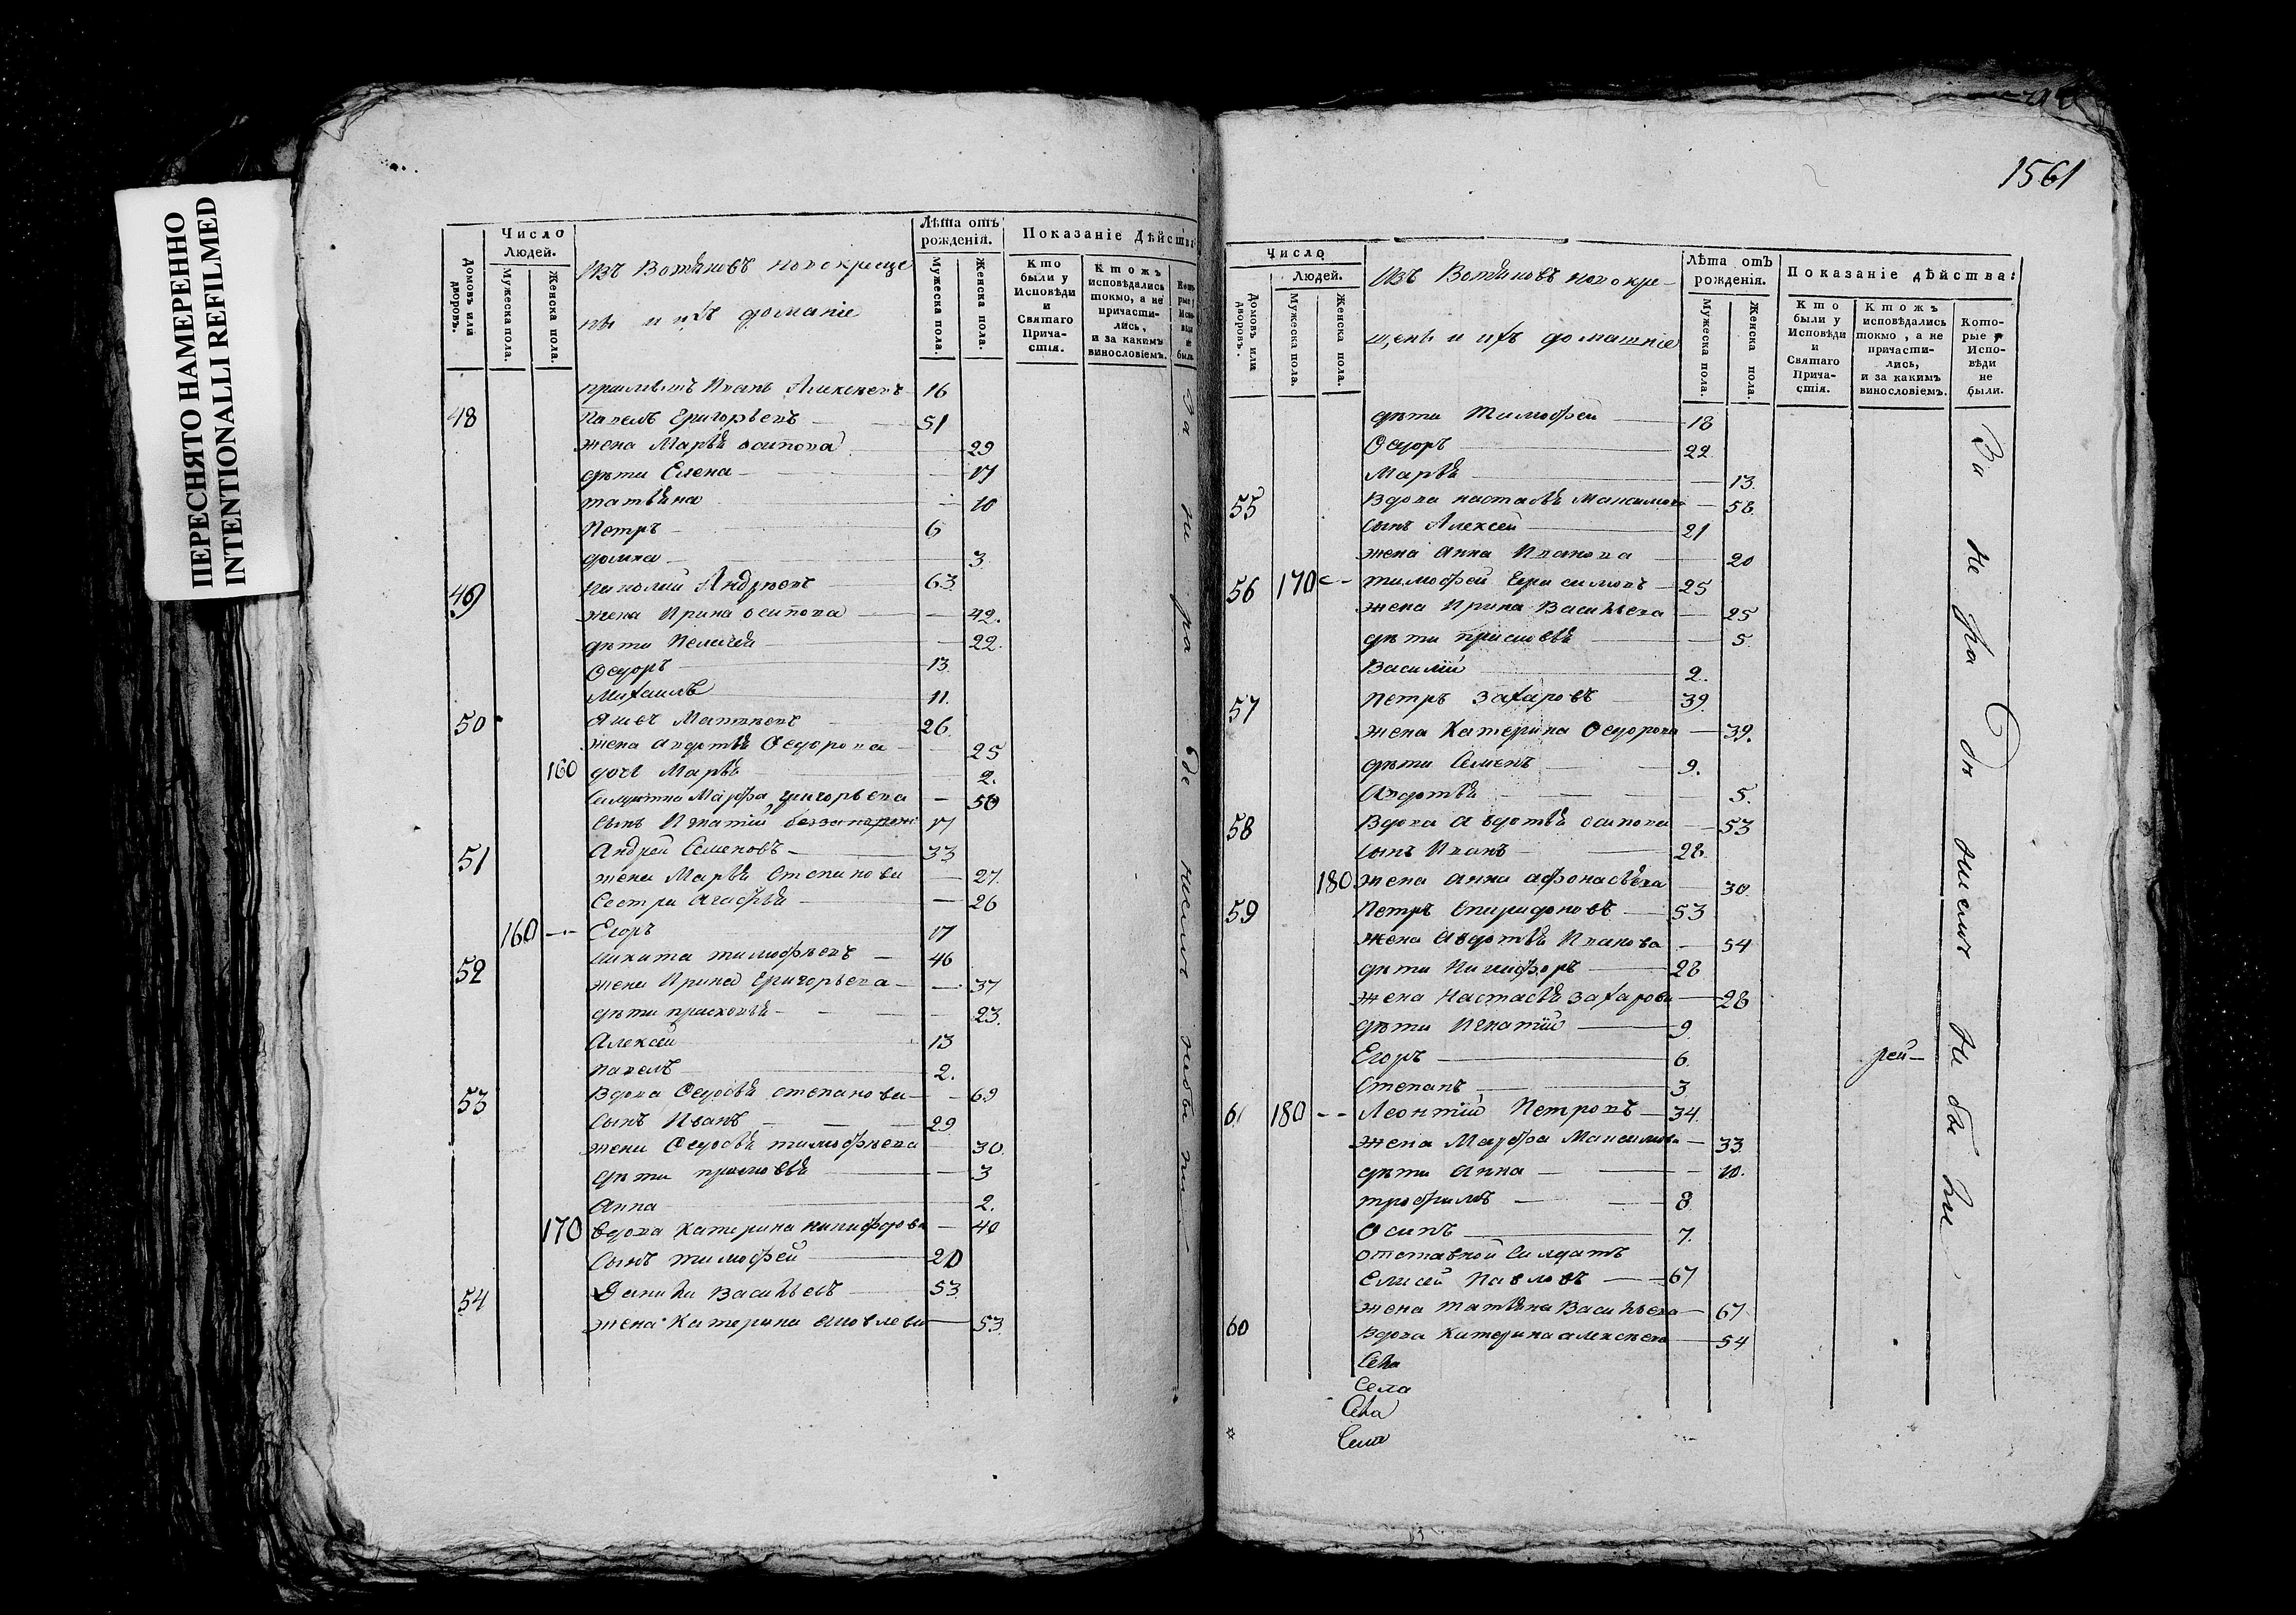 ПЕРЕСНЯТО НАМЕРЕННО
INTENTIONALLI REFILMED
Домовъ или дворовъ.
Число Людей.
Мужеска пола.
Женска пола.
Изъ Вотяковъ новокреще
ны и ихъ доманіе
Лѣта отъ рожденія.
Мужеска пола.
Женска пола.
Показаніе Дѣйства
Кто были у Исповѣди и Святаго Причастія.
Ктожъ исповѣдались токмо, а не причастились, и за какимъ винословіемъ.
приимышъ Иванъ Алексеевъ 16
48 Павелъ Григорьевъ 51
жена Марья осипова 29
дѣти Елена 17
татьяна 10
Петръ 6
домна 3
49 Андреевъ 63
жена Ирина осипова 42.
дѣти 22.
Ѳедоръ 13
Михаилъ 11.
50 Матвеевъ 26
жена авдотья Ѳедорова 25
160 дочь Марья 2.
Марфа григорьева 50
сынъ Игнатій 17
51 Андрей Семеновъ 33
жена Марья Степанова 27.
Сестра Агафья 26
160 Егоръ 17
52 никита тимофеевъ 46
жена Ирина Григорьева 37
дѣти прасковья 23.
Алексей 13
павелъ 2.
53 Вдова Ѳедосья степанова 69
Сынъ Иванъ 29
жена Ѳедосья тимофеева 30.
дѣти 3
Анна 2.
170 вдова Катерина никифорова 40
Сынъ тимофей 20
54 Данила Васильевъ 53
жена Катерина яковлева 53.
1561
Число Людей.
Домовъ или дворовъ.
Мужеска пола.
Женска пола.
Изъ Вотяковъ новокре-
щены и ихъ домашніе
Лѣта отъ рожденія.
Мужеска пола.
Женска пола.
Показаніе дѣйства:
Кто были у Исповѣди и Святаго Причастія.
Ктожъ исповѣдались токмо, а не причастились, и за какимъ винословіемъ.
Которые у Исповѣди не были.
дѣти Тимофей 18
Ѳедоръ 22
Марья 13.
55 Вдова настасья Максимова 58
сынъ Алексей 21
жена анна Иванова 20
56 170 тимофей Герасимовъ 25
жена Ирина Васильева 25
дѣти 5.
Василій 2.
57 Петръ Захаровъ 39
жена Катерина Ѳедорова 39.
дѣти Семенъ 9.
Авдотья 5.
58 Вдова авдотья осипова 53
сынъ Иванъ 28
180 жена анна афонасьева 30
59 Петръ Спиридоновъ 53
жена авдотья Иванова 54
дѣти Никифоръ 28
жена Настасья захарова 28
дѣти Игнатій 9
Егоръ 6.
Степанъ 3
61 180 Леонтій Петровъ 34.
жена Марфа Максимова 33
дѣти анна 10.
трофимъ 8
Осипъ 7.
отставной Салдатъ
Елисей Павловъ 67
жена татьяна Васильева 67
60 Вдова Катерина алексеева 54
Села
Села
Села
Села
За не ра дѣ ниемъ не бы ли